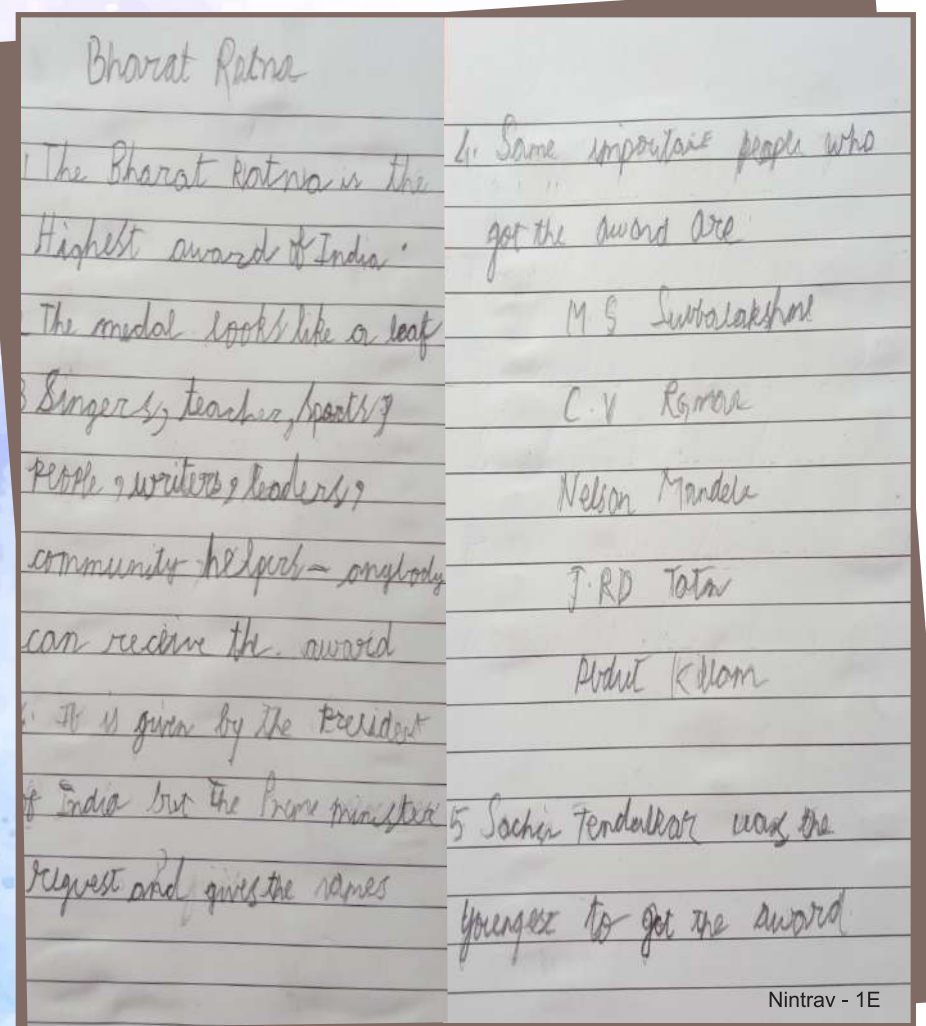 Bharat Ratna
1 The Bharat Ratna is the
Highest award of India.
The medal looks like a leaf
3 Singers, teacher, sports,
people, writers, leaders,
community helpers - anybody
can receive the. award
4. It is given by the President
of India but the Prime minister
request and gives the names
4. Some important people who
got the award are
M S Subbalakshmi
C.V Raman
Nelson Mandela
J.RD Tata
Abdul Kalam
5 Sachin Tendalkar was the
youngest to get the award
Nintrav - 1E